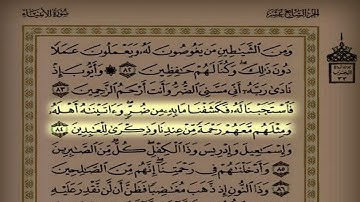 الجزء السابع عشر
سورة الأنبياء
وَمِنَ الشَّيَاطِينِ مَن يَغُوصُونَ لَهُ وَيَعْمَلُونَ عَمَلًا
دُونَ ذَٰلِكَ وَكُنَّا لَهُمْ حَافِظِينَ ٨٢ وَأَيُّوبَ إِذْ
نَادَىٰ رَبَّهُ أَنِّي مَسَّنِيَ الضُّرُّ وَأَنتَ أَرْحَمُ الرَّاحِمِينَ ٨٣
فَاسْتَجَبْنَا لَهُ فَكَشَفْنَا مَا بِهِ مِن ضُرٍّ وَآتَيْنَاهُ أَهْلَهُ
وَمِثْلَهُم مَّعَهُمْ رَحْمَةً مِّنْ عِندِنَا وَذِكْرَىٰ لِلْعَابِدِينَ ٨٤
وَإِسْمَاعِيلَ وَإِدْرِيسَ وَذَا الْكِفْلِ كُلٌّ مِّنَ الصَّابِرِينَ
٨٥ وَأَدْخَلْنَاهُمْ فِي رَحْمَتِنَا إِنَّهُم مِّنَ الصَّالِحِينَ
٨٦ وَذَا النُّونِ إِذ ذَّهَبَ مُغَاضِبًا فَظَنَّ أَن لَّن نَّقْدِرَ عَلَيْهِ